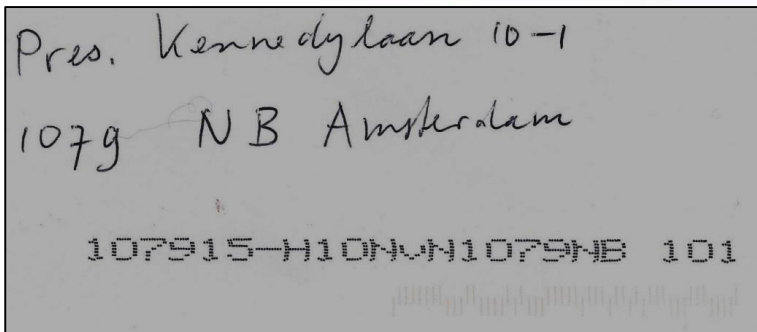 Pres. Kennedylaan 10-1
1079 NB Amsterdam
107915-H10NvN1079NB 101